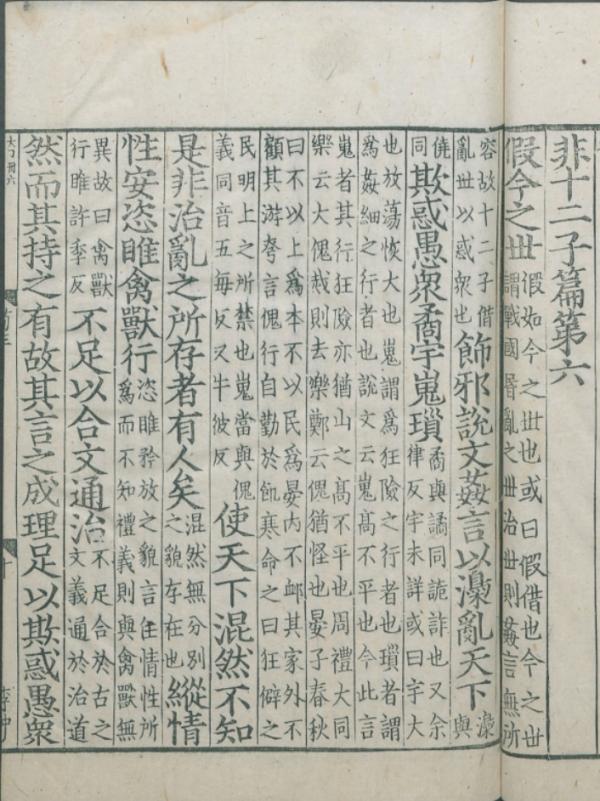 非十二子篇第六
假今之世 假如今之世也或曰假借也今之世
謂戰國昏亂之世治世則姦言無所
容故十二子借
亂世以惑衆也 飾邪說文姦言以亂天下 與
同 欺惑愚衆矞宇嵬瑣 矞與譎同詭詐也又余
律反宇未詳或曰宇大
也放蕩恢大也嵬謂爲狂險之行者也瑣者謂
爲姦細之行者也說文云嵬高不平也今此言
嵬者其行狂險亦猶山之高不平也周禮大司
樂云大傀烖則去樂鄭云傀猶怪也晏子春秋
曰不以上爲本不以民爲晏內不䘏其家外不
顧其游夸言傀行自勤於飢寒命之曰狂僻之
民明上之所禁也嵬當與傀
義同音五每反又牛彼反 使天下混然不知
是非治亂之所存者有人矣 混然無分別
之貌存在也 縱情
性安恣睢禽獸行 恣睢矜放之貌言任情性所
爲而不知禮義則與禽獸無
異故曰禽獸
行睢許季反 不足以合文通治 不足合於古之
文義通於治道
然而其持之有故其言之成理足以欺惑愚衆